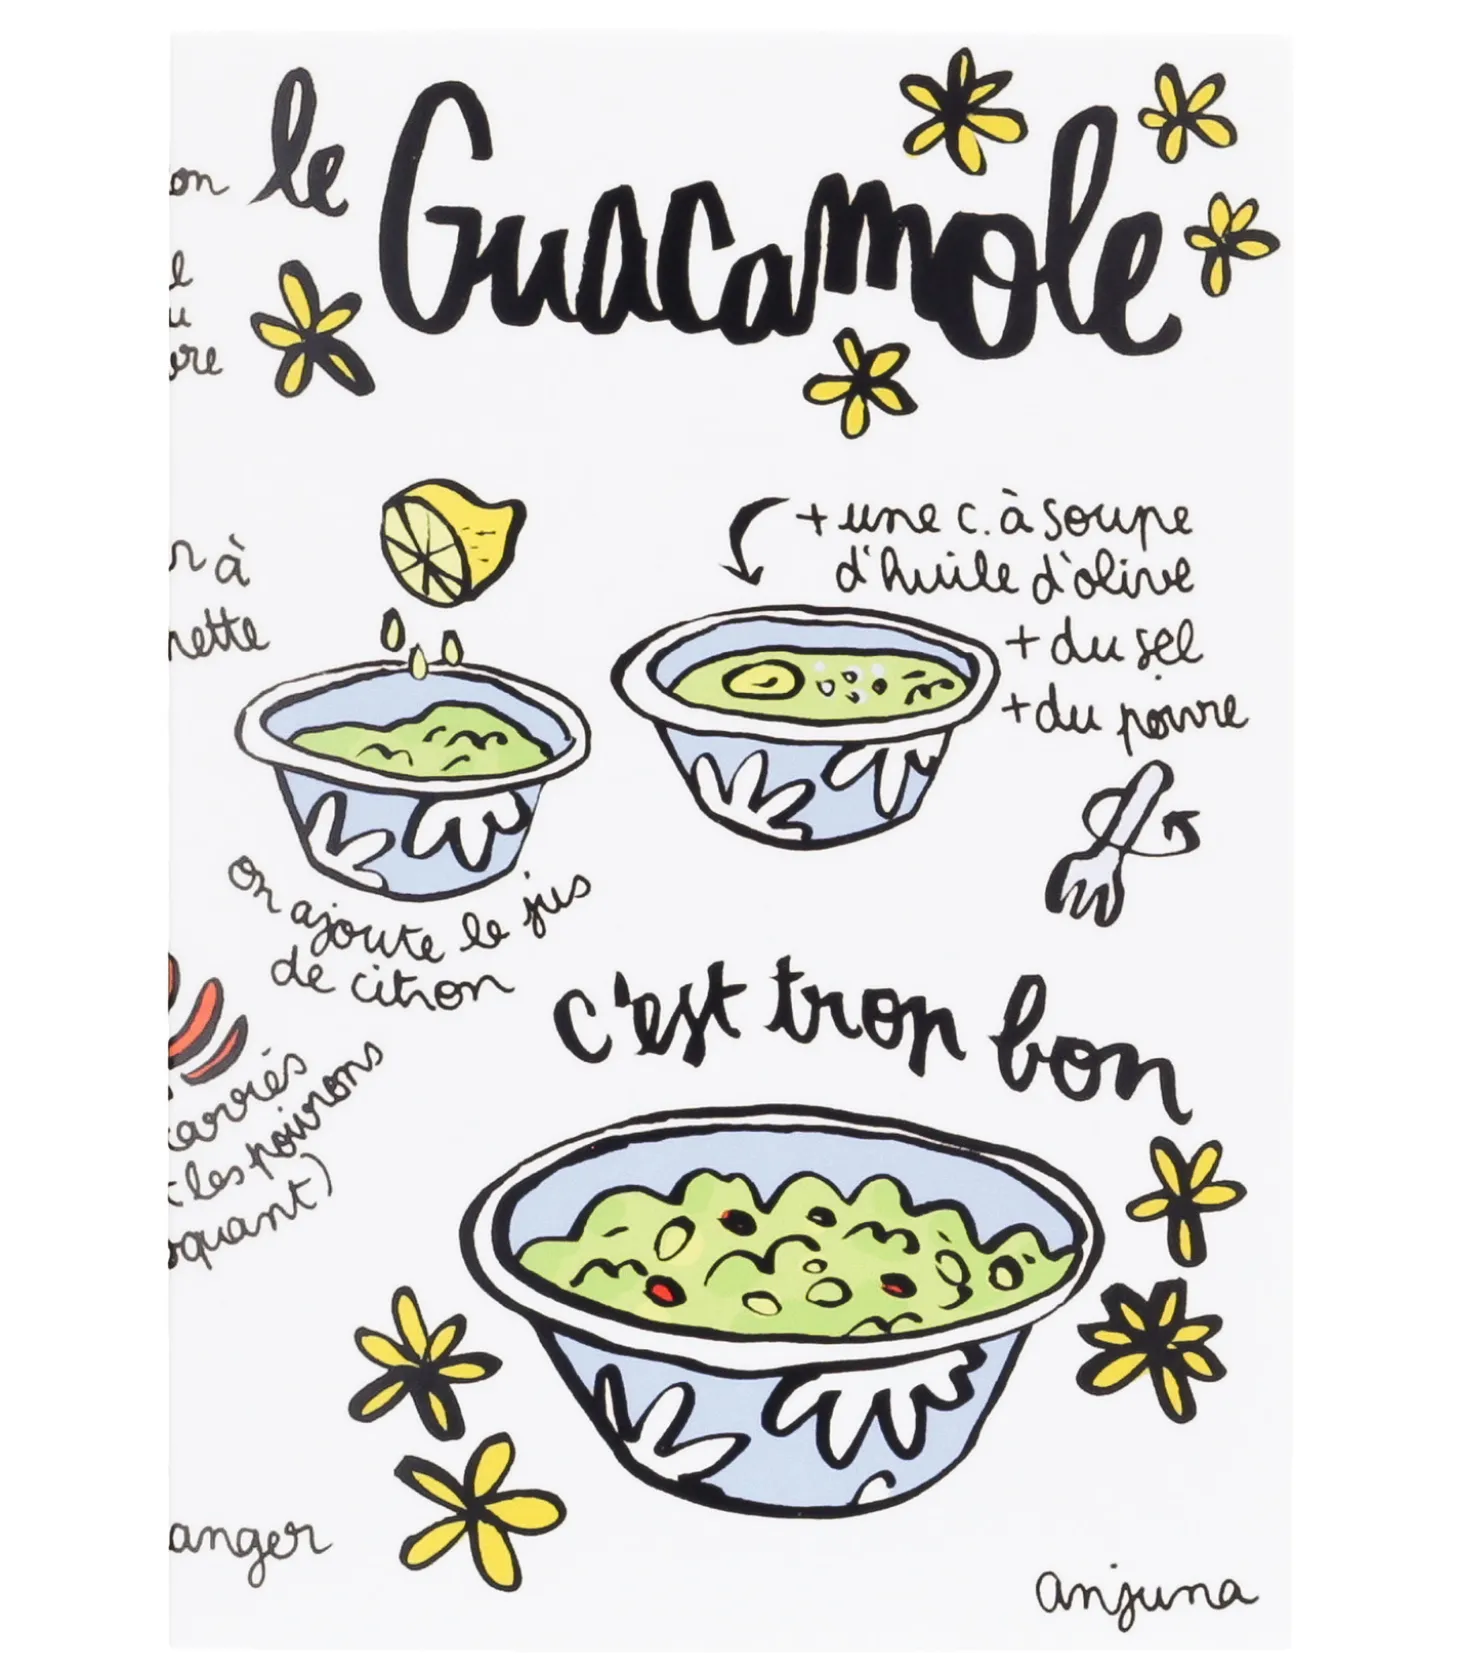 le Guacamole
+ une c. à soupe
d'huile d'olive
+ du sel
+ du poivre
à
on ajoute le jus
de citron
c'est trop bon
carrés
les poivrons
anjuna